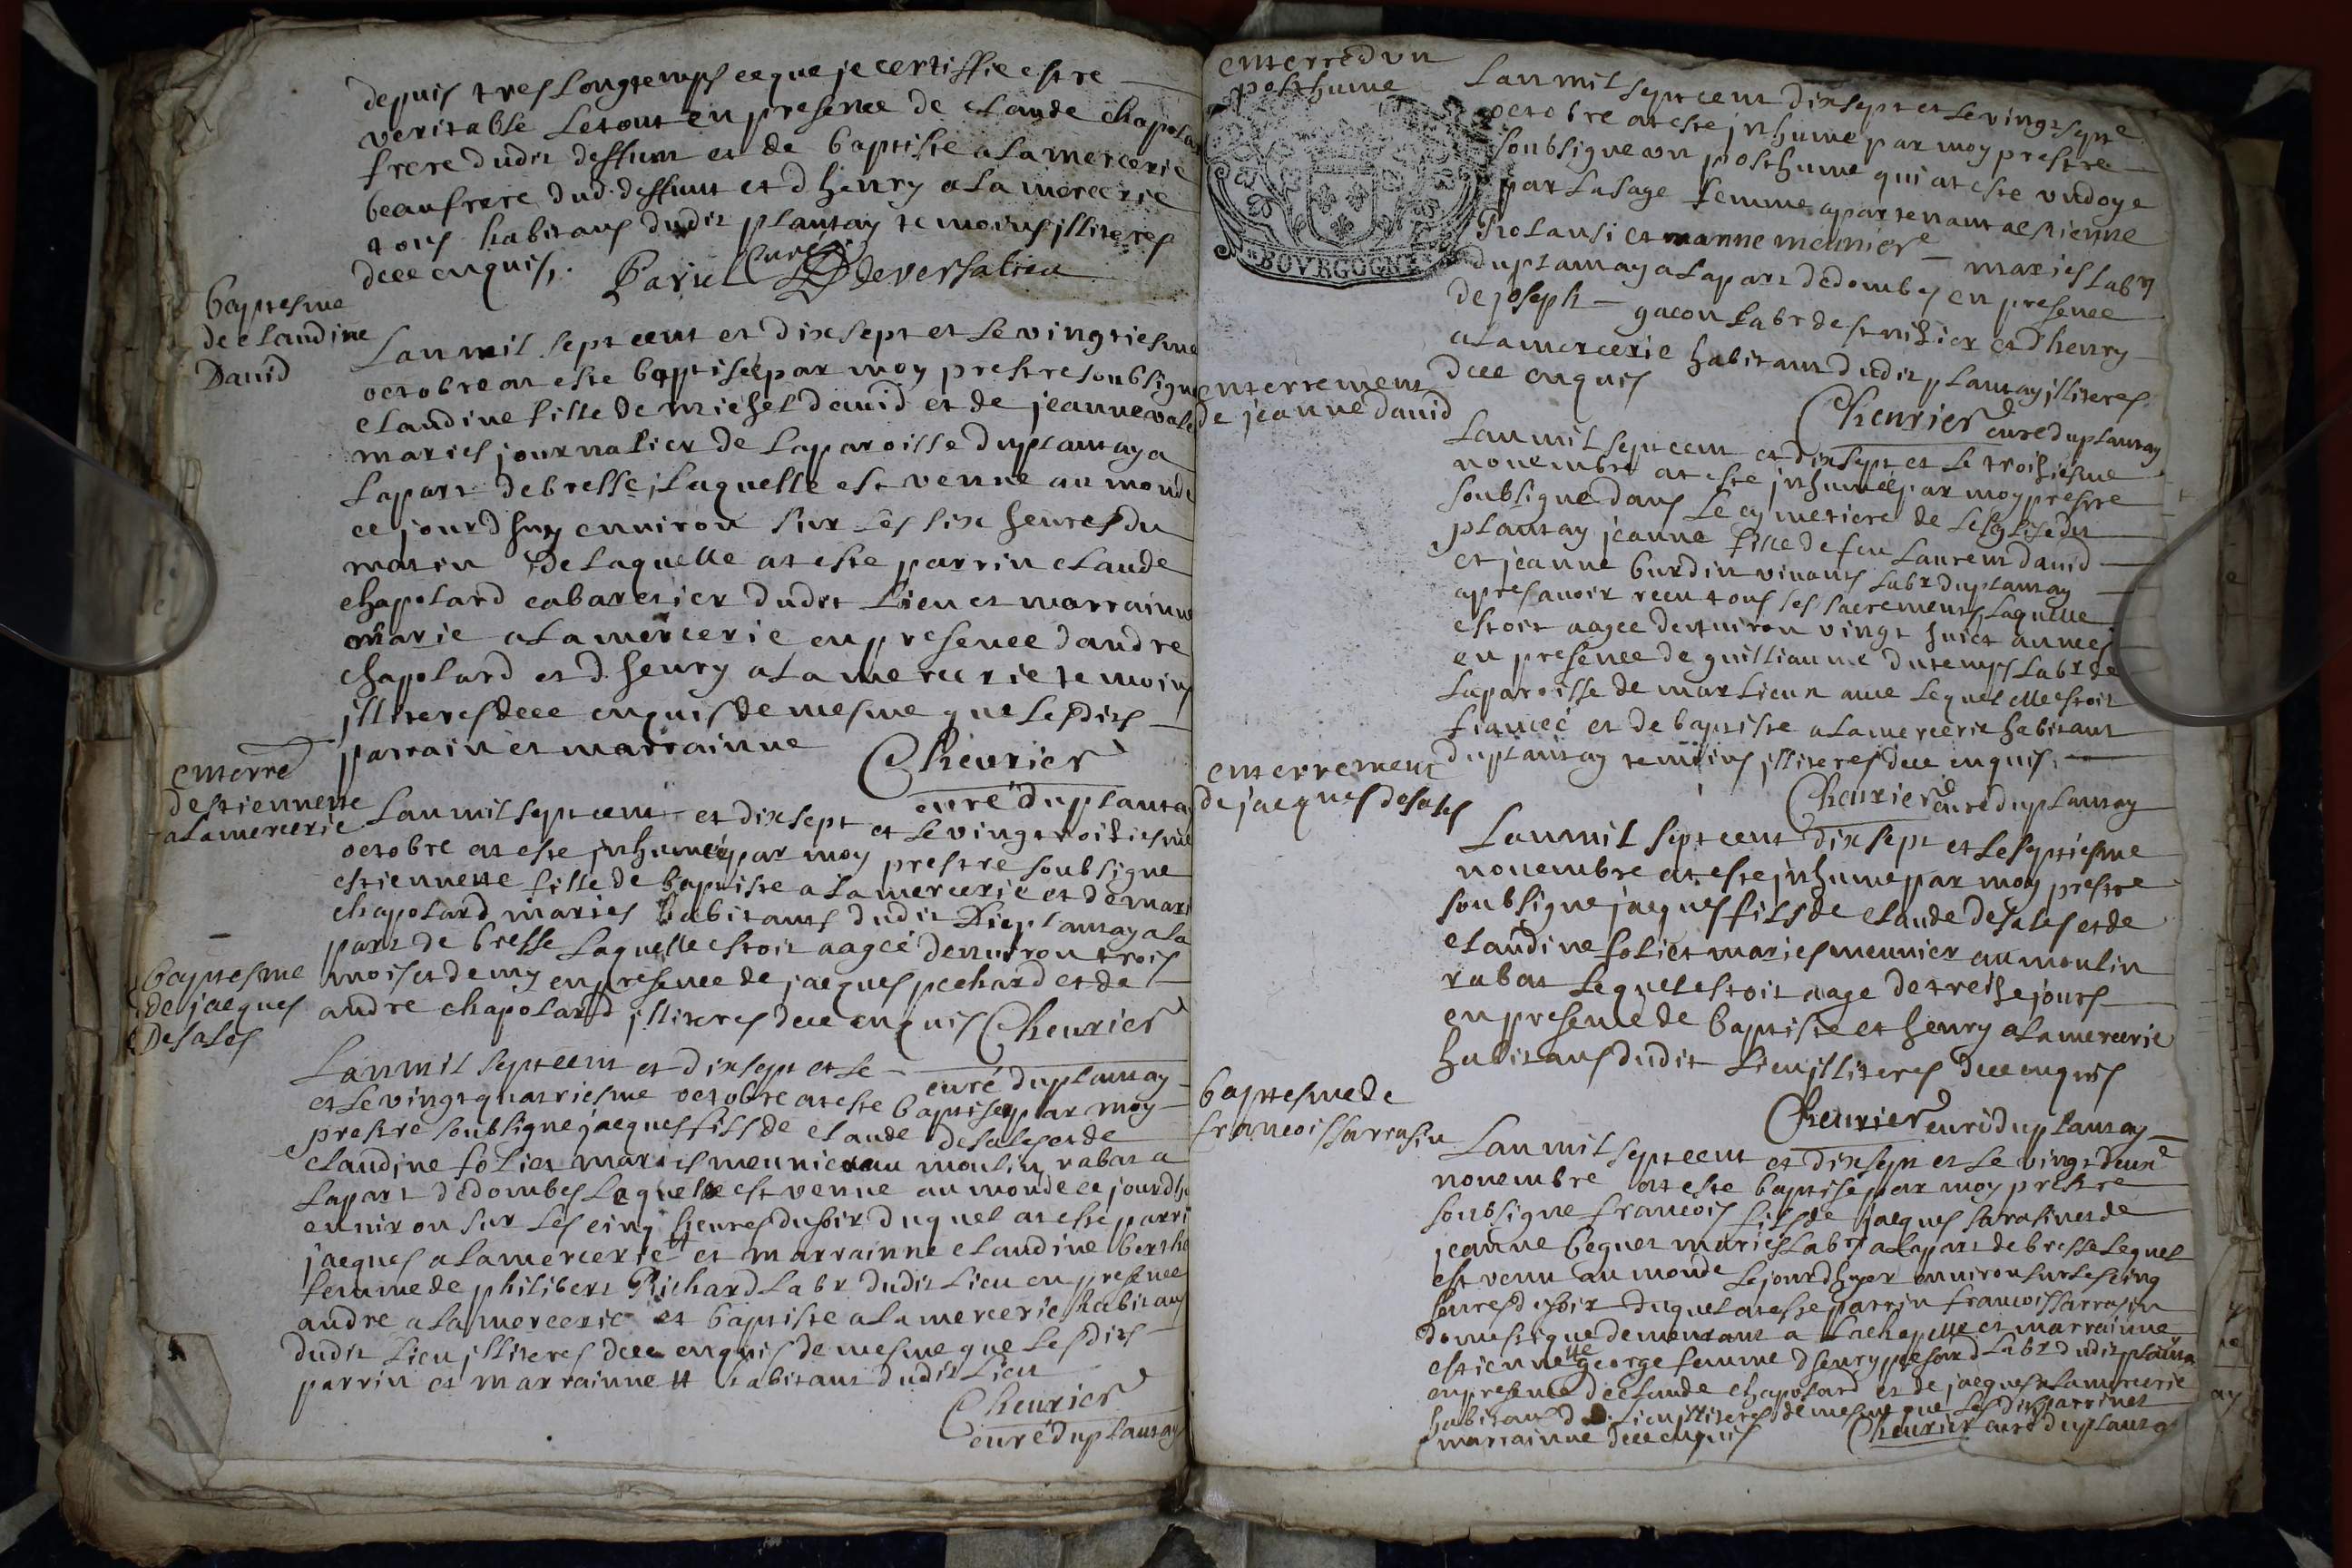 depuis tres longtemps ce que je certiffie estre
veritable le tout en presence de claude chapola
frere dudit deffunt et de baptiste alamercerie
beaufrere dud. deffunt et d henry alamercerie
tous habitans dudit plantay temoins jlliteres
dece enquis. Pariel Curé de versalieu
baptesme
de claudine
Dauid
Lan mil sept cent et dix sept et le vingtiesme
octobre at este baptisée par moy prestre soubsigne
claudine fille de michel dauid et de jeanne
maries journalier de la paroisse du plantay a
la part de bresse, laquelle est venue au monde
ce jourdhuy enuiron sur les six heures du
matin de laquelle at este parrin claude
chapolard cabaretier dudit lieu et marrainne
marie alamercerie en presence dandre
chapolard et d. henry alamercerie temoins
jlliteres dece enquis de mesme que lesdits
parrain et marrainne Cheurier
curé du planta
enterré
destiennette
alamercerie
Lan mil sept cent et dix sept et le vingt troiziesme
octobre at este jnhumée par moy prestre soubsigne
estiennette fille de baptiste alamercerie et de mari
chapolard maries habitants dudit plantay a la
part de bresse laquelle estoit aagée denuiron trois
mois et demy en presence de jacques pechard et de
andre chapolard jlliteres dece enquis Cheurier
curé du plantay
baptesme
de jacques
Desales
Lan mil sept cent et dix sept et le
et le vingt quatriesme octobre at este baptise par moy
prestre soubsigne jacques fils de claude desales et de
claudine foliet maries meunier au moulin rabat a
la part de dombes lequel est venue au monde ce jourdh
enuiron sur les cinq heures du soir duquel at este parri
jacques alamercerie tt et marrainne claudine bertho
femme de philibert Richard labr dudit lieu en presence
andre alamercerie et baptiste alamercerie habitans
dudit lieu jlliteres dece enquis de mesme que lesdits
parrin et marrainne tt habitant dudit lieu
Cheurier
curé du plantay
enterré dun
posthume
BOVRGOGNE
Lan mil sept cent dix sept et le vingt sept e
octobre at este jnhume par moy prestre
soubsigne un posthume qui at este undoye
par la sage femme apartenant a estienne
Rolansi et marie meuniere maries labr
du plantay a la part de dombes en presence
de joseph gacon labr de st nizier et d henry
alamercerie habitant dudit plantay jlliteres
dece enquis
Cheurier curé du plantay
enterrement
de jeanne dauid
Lan mil sept cent et dix sept et le troiziesme
nouembre at este jnhumée par moy prestre
soubsigne dans le cymetiere de leglise du
plantay jeanne fille de feu laurent dauid
et jeanne burdin viuants labr du plantay
apres auoir receu tous ses sacrements laquelle
estoit aagee denuiron vingt huict annees
en presence de guilliaume dutemps labr de
la paroisse de marlieux auec lequel elle estoit
fiancée et de baptiste alamercerie habitant
du plantay temoins jlliteres dece enquis.
Cheurier curé du plantay
enterrement
de jacques desales
Lan mil sept cent dix sept et le septiesme
nouembre at este jnhume par moy prestre
soubsigne jacques fils de claude desales et de
claudine foliet maries meunier au moulin
rabat lequel estoit aage de treize jours
en presence de baptiste et henry alamercerie
habitans dudit lieu jlliteres dece enquis
Cheurier curé du plantay
baptesme de
francois sarrasin
Lan mil sept cent et dix sept et le vingt deux e
nouembre at este baptise par moy prestre
soubsigne francois fils de jacques sarasin et de
jeanne beguet maries labr a la part de bresse lequel
est venu au monde le jourdhyer enuiron sur les cinq
heures du soir duquel at este parrin francois sarrasin
domestique demeurant a lachapelle et marrainne
estiennette george femme dhenry pechard labr dudit planta
en presence de claude chapolard et de jacques alamercerie
habitans dud. lieu jlliteres de mesme que lesdits parrin et
marrainne dece enquis Cheurier curé du plantay